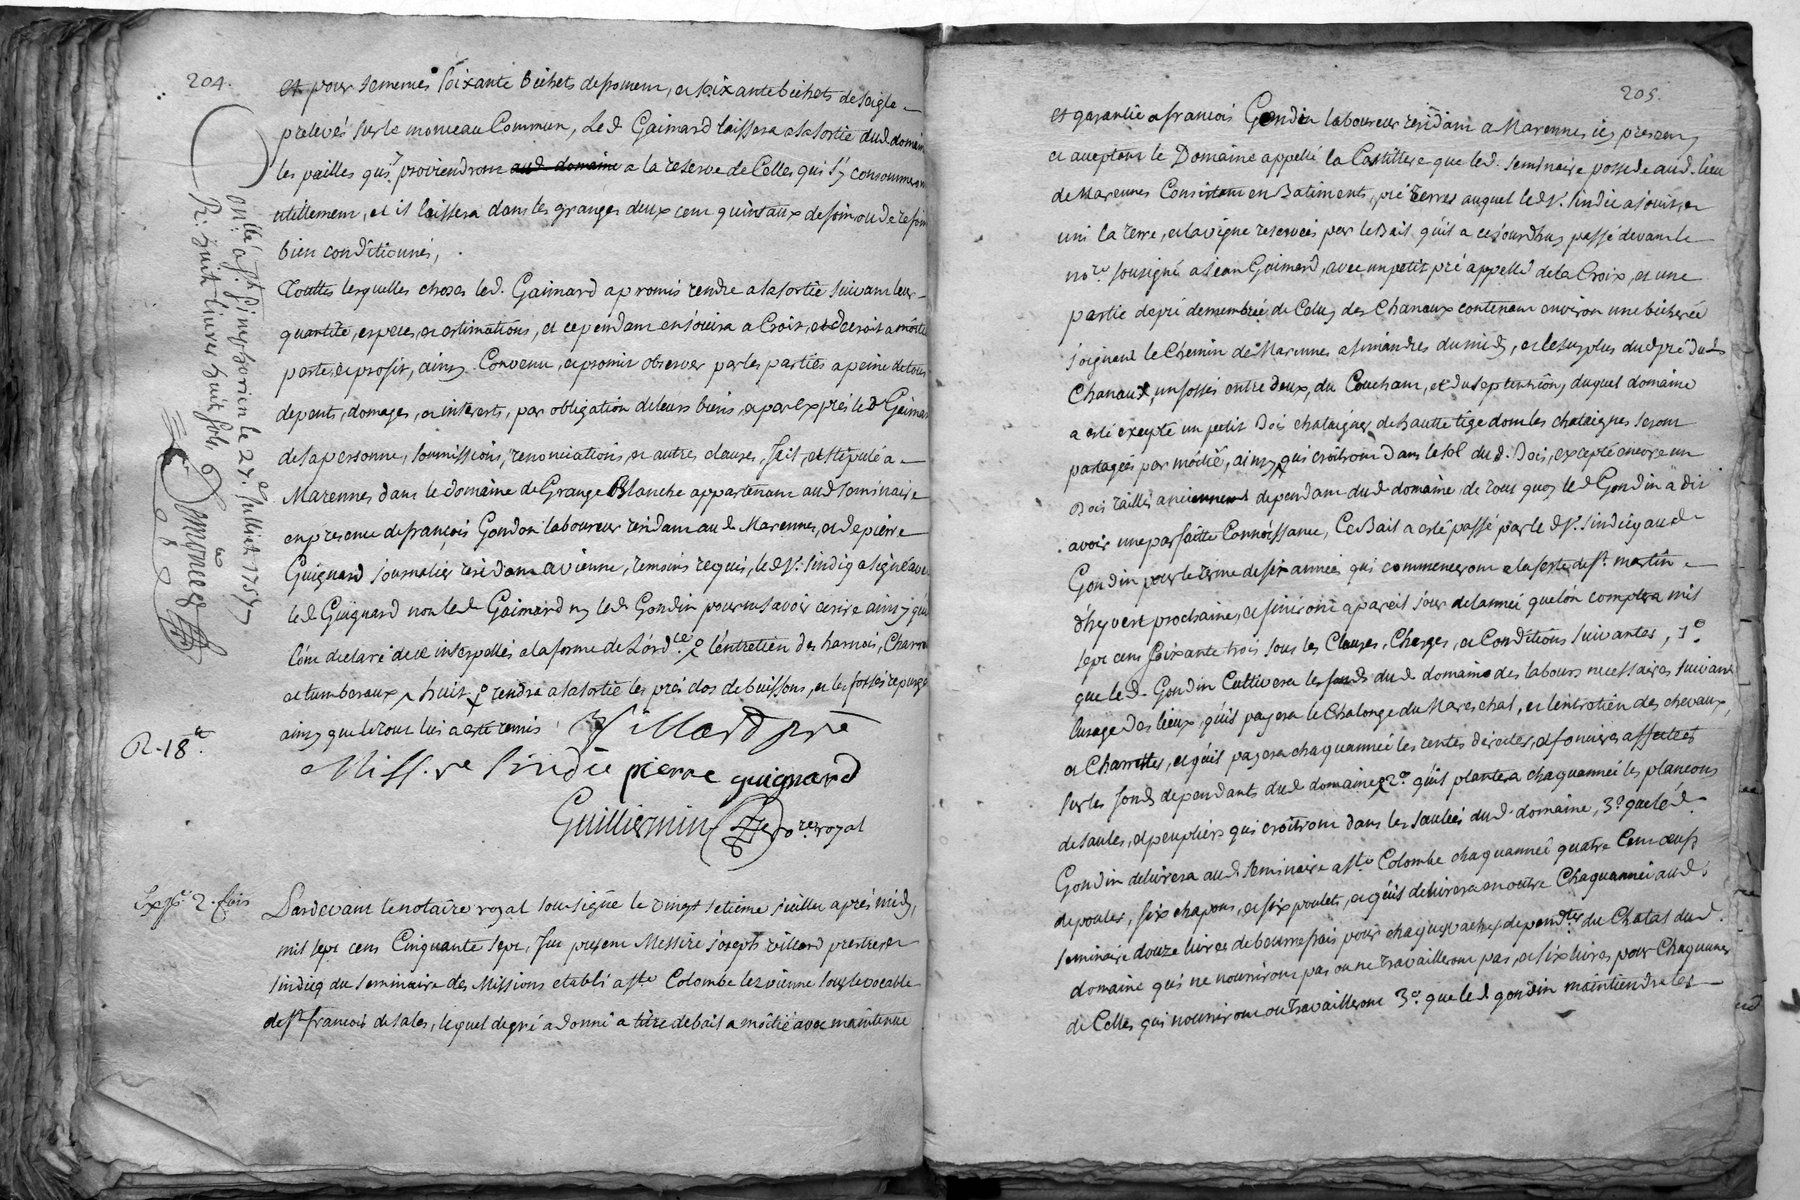 204.
et pour semences soixante bichets de froment, et soixante bichets de seigle
prelevés sur le monceau Commun, Led Gaimard laissera a la sortie dud domaine
les pailles qui proviendront aud domaine a la reserve de Celles qui s'y consommeront
utillement, et il laissera dans les granges deux cent quintaux de foin ou de refoin
bien conditionnés,
Touttes lesquelles choses led. Gaimard a promis rendre a la sortie suivant leur
quantité, especes, et estimations, et cependant en jouira a Croix, et decroit a moitié
perte, et profit, ainsy Convenu, et promis observer par les parties a peine de tous
depents, domages, et interests, par obligation de leurs biens, et par exprés led Gaimard
de sa personne, soumissions, renonciations, et autres clauses, fait, et stipulé a
Marennes dans le domaine de Grange Blanche appartenant aud seminaire
en presence de françois Gondon laboureur residant aud Marennes, et de pierre
Guignard journalier residant a vienne, temoins requis, led Sr. sindiq a signé avec
led Guignard non led Gaimard ny led Gondin pour ne savoir ecrire ainsy qu'ils
l'ont declaré de ce interpellés a la forme de L'ord.ce l'entretien des harnois, Charrettes
et tumbereaux huit rendra a la sortie les prés clos de buissons, et les fossés repurgés
ainsy que le tout lui a esté remis Villard ptre
Miss.re sindic pierre guignard
Guilliermin no.re royal
Con.llé a St. Simphorien le 27.e Julliet 1757
R. huit livres huit sols
Simonced
R. 18.tt
Exp.é 2. fois
Pardevant le notaire royal sousigné le vingt setieme juillet aprés midy,
mil sept cens Cinquante sept, fut present Messire joseph villard prestre et
sindicq du seminaire des Missions etabli a Ste Colombe lez vienne sous le vocable
de St. francois de sales, lequel de gré a donné a titre de bail a moitié avec maintenue
205.
et garantie a francois Gondin laboureur residant a Marennes icy present,
et acceptant le Domaine appellé la Castillere que led. seminaire possede aud. lieu
de Marennes Consistant en Batiments, pré terres auquel led Sr. sindic a joint, et
uni la terre, et la vigne reservées par le Bail qu'il a cejourdhuy passé devant le
no.re sousigné a Jean Gaimard, avec un petit pré appellé de la Croix, et une
partie de pré demembrée de Celuy des Chanaux contenant environ une bicherée
joignant le Chemin de Marennes a simandres du midy, et le surplus dud pré des
Chanaux un fossés entre deux, du Couchant, et du septentrion, duquel domaine
a esté excepté un petit Bois chataigner de hautte tige dont les chataignes seront
partagées par moitié, ainsy qui croitront dans le sol dud. Bois, excepté encore un
Bois taillé anciennent dependant dud domaine de tout quoy led Gondin a dit
avoir une parfaitte Connoissance, Ce Bail a esté passé par led Sr. sindicq aud
Gondin pour le terme de six années qui commenceront a la feste de St. martin
d'hyvert prochaine, et finiront a pareil jour de l'année que l'on comptera mil
sept cens soixante trois sous les Clauses, Charges, et Conditions suivantes, 1.o
que led. Gondin Cultivera les fonds dud domaine des labours necessaires suivant
l'usage des lieux, qu'il payera le Chalonge du Mareschal, et l'entretien des chevaux,
et Charrettes, et qu'il payera chaquannée les rentes directes, et foncieres affectées
sur les fonds dependants dud domaine, 2.o qu'il plantera chaquannée les plancons
de saules, et peupliers qui croitront dans les saulées dud. domaine, 3.o que led
Gondin delivrera aud seminaire a Ste Colombe chaquannée quatre Cent œufs
de poules, six chapons, et six poulets, et qu'il delivrera en outre Chaquannée aud.
seminaire douze livres de beurre frais pour chaques vaches dependtes du Chatal dud.
domaine qui ne nourriront pas ou ne travailleront pas, et six livres pour Chaquunes
de Celles qui nourriront ou travailleront 3.o que led gondin maintiendra les